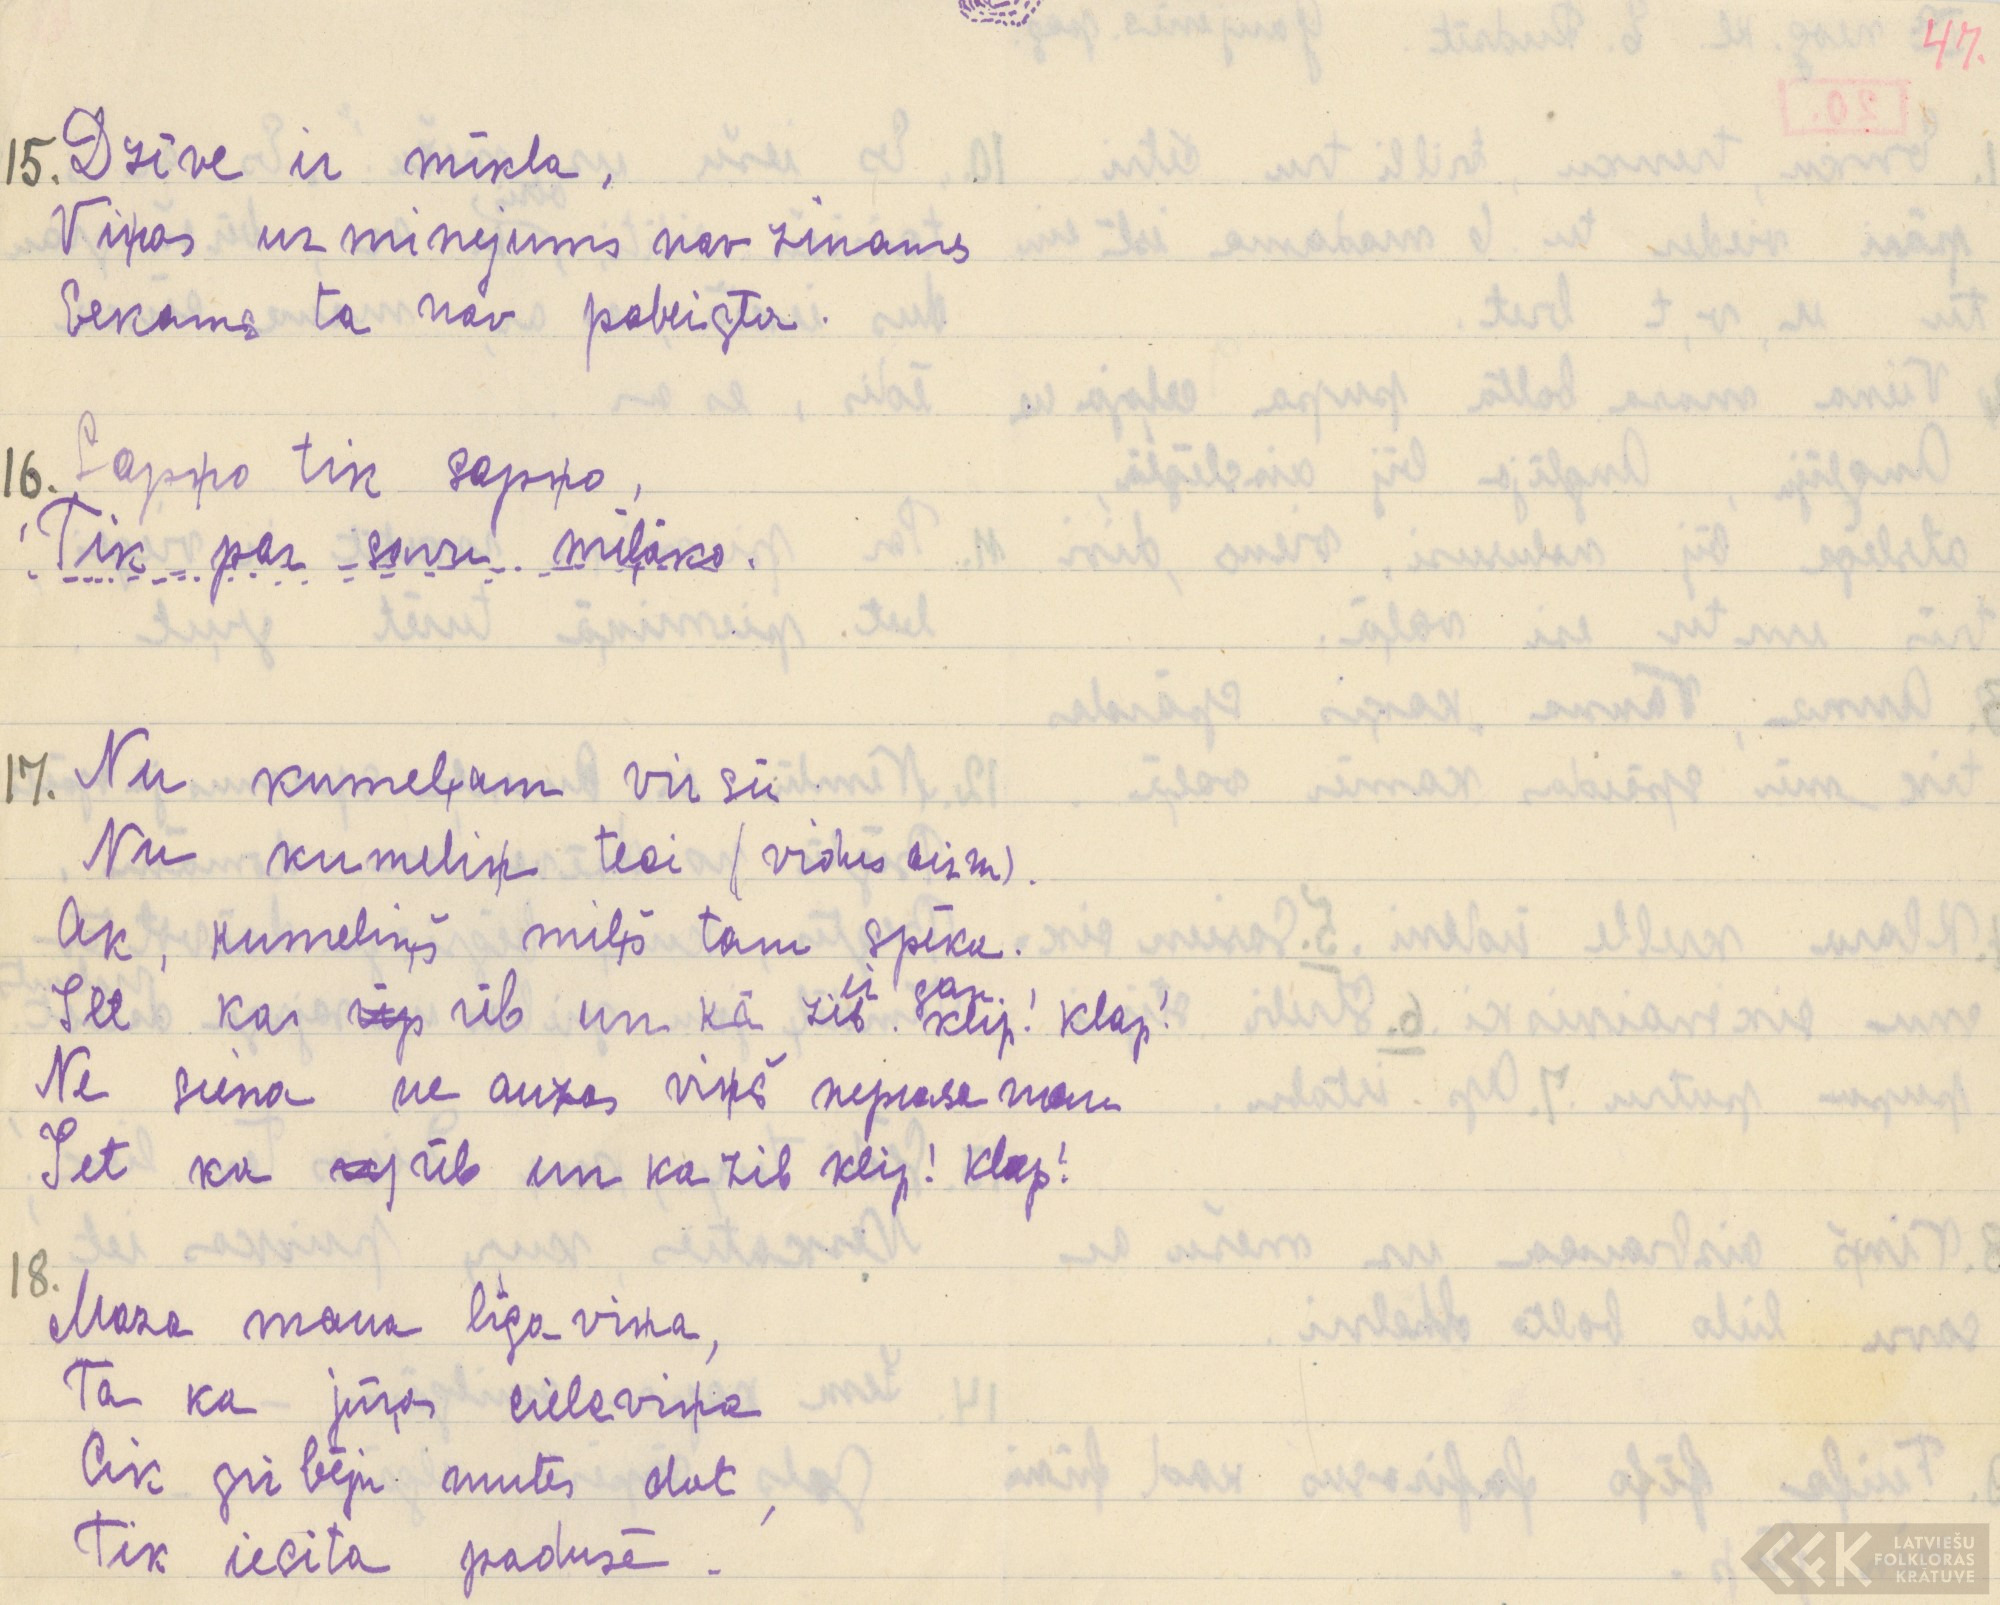 47.
15. Dzīve ir mīkla,
Viņas uzminejums nav zinams
Eekams ta nav pabeigta.
16. Sapņo tik sapņo,
Tik par savu mīļāko.
17. Nu kumeļam virsū
Nu kumeliņ teci (vidus aizm).
Ak, kumeliņš milš tam spēka.
ir gan.
Iet ka rīb un kā zib. klip! klap!
Ne siena ne auzas viņš neprasa man
Iet ka rīb un ka zib klip! klap!
18.
Maza mana līgaviņa,
Ta ka jūŗas cielaviņa
Cik gribēju mutes dot,
Tik iesita padusē.
LATVIEŠU
FOLKLORAS
KRĀTUVE